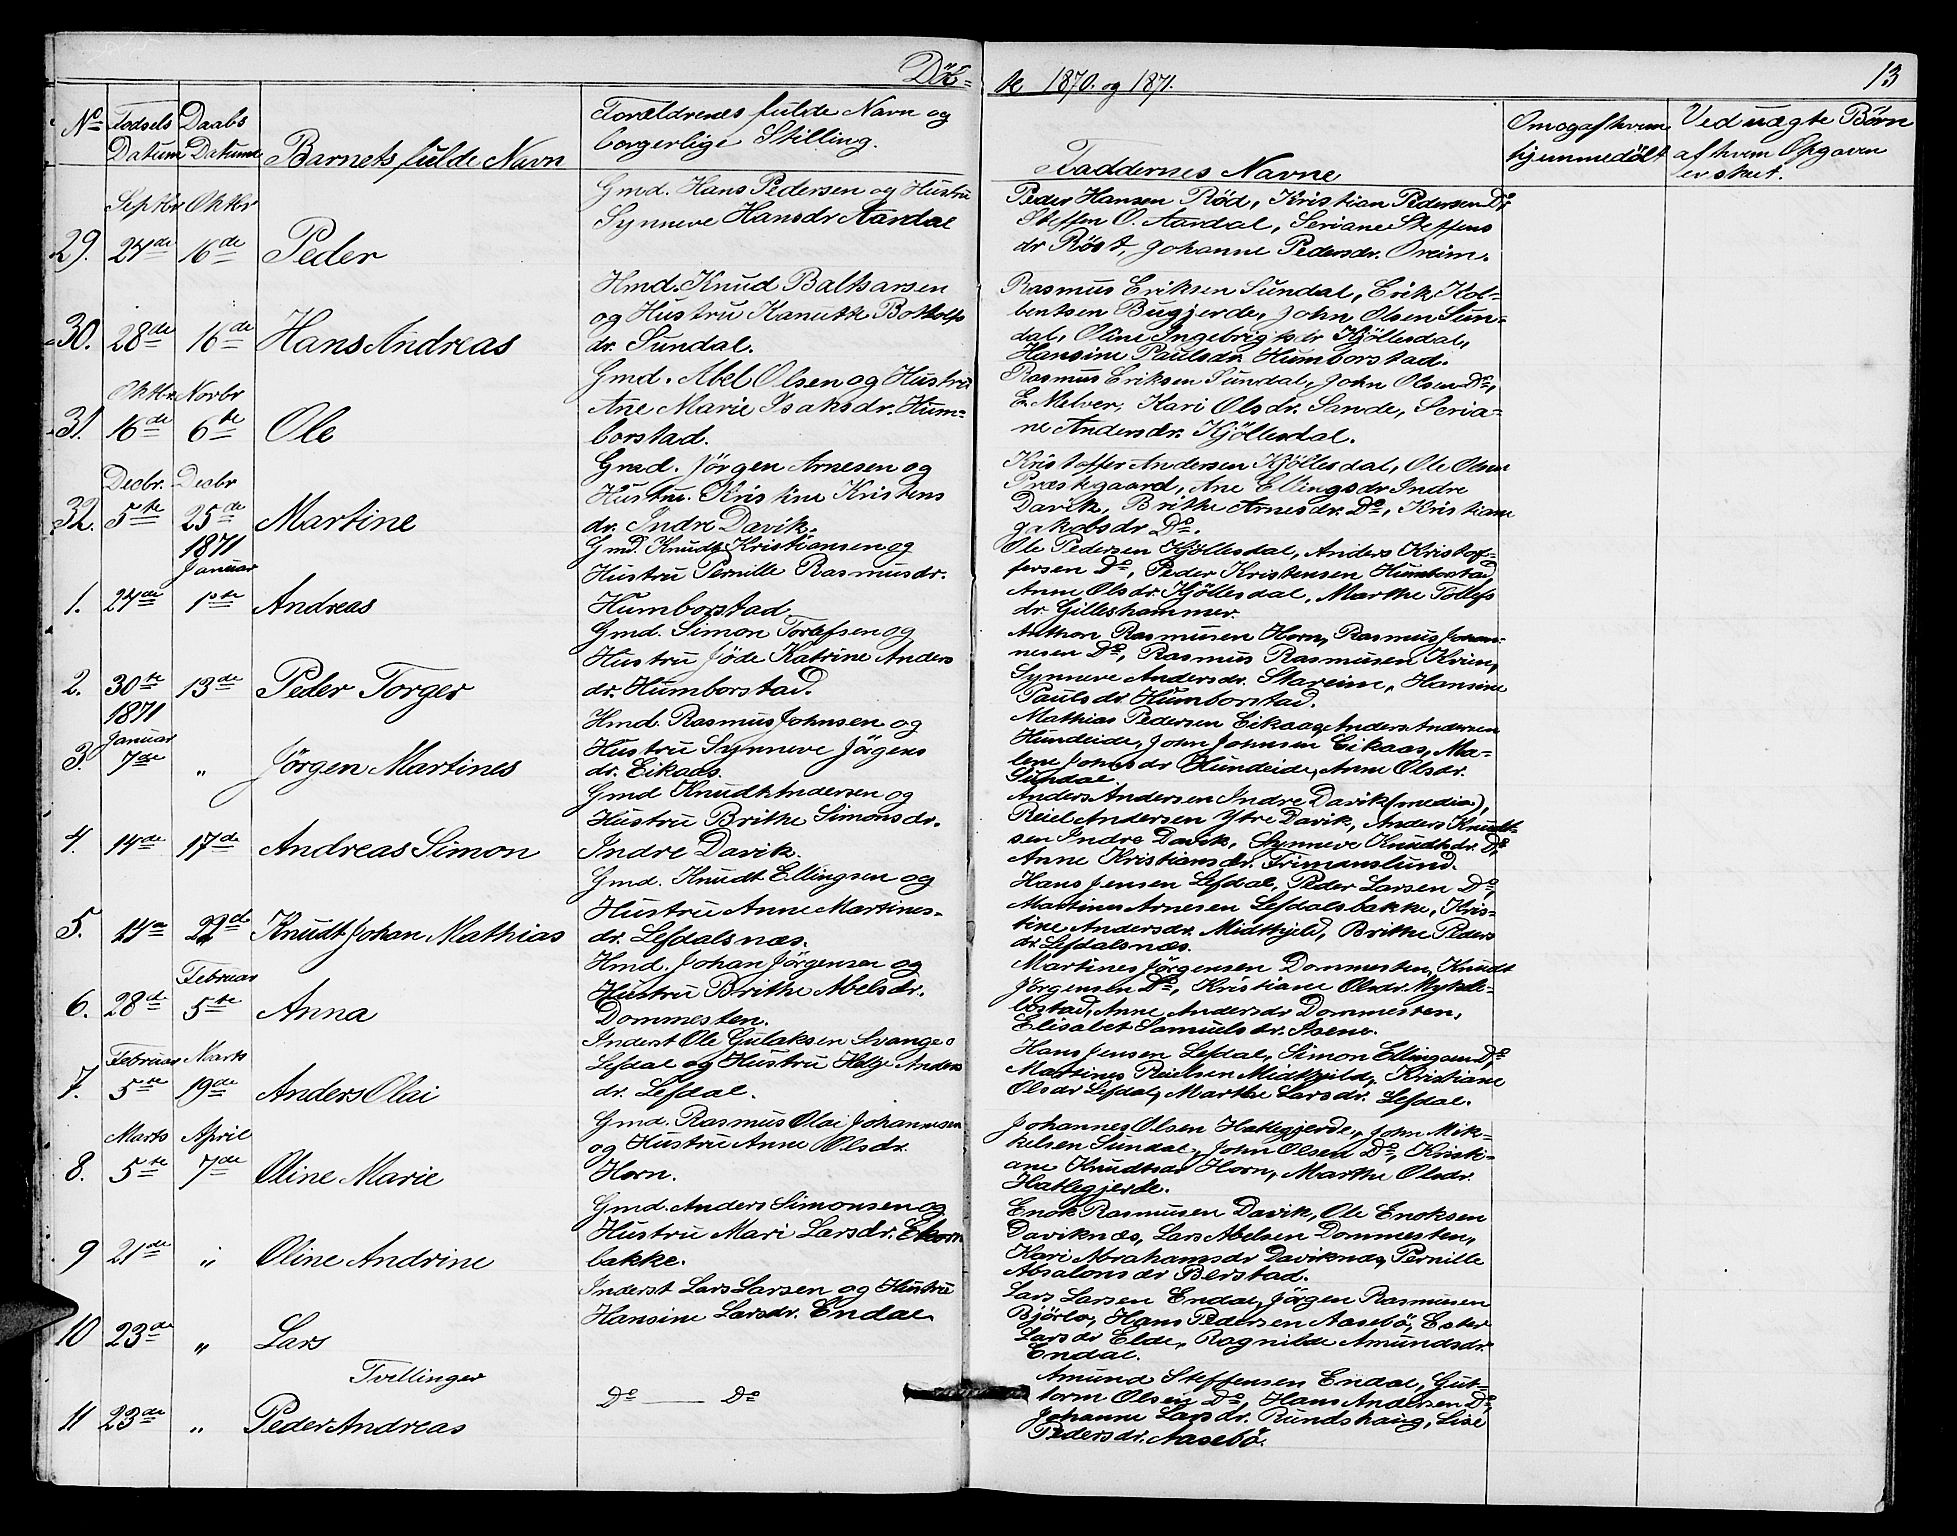 Döb-
te 1870. og 1871.
13
No
Fødsels Datum
Daabs Datum
Barnets fulde Navn
Forældrenes fulde Navn og
borgerlige Stilling.
Faddernes Navne
Om og af hvem
hjemmedöbt
Ved uægte Børn
af hvem Opgaven
er skeet.
Septbr Oktbr
29. 24de 16de Peder
Gmd. Hans Pedersen og Hustru
Synneve Hansdr Aardal
Peder Hansen Röd, Kristian Pedersen Do,
Steffen O. Aardal, Seriane Steffens
dr Röst, Johanne Pedersdr. Oreim.
30. 28de 16de Hans Andreas
Hmd. Knud Baltsarsen
og Hustru Kanutte Bottolfs
dr. Sundal.
Rasmus Eriksen Sundal, Erik Kol-
bentsen Bugjerde, John Olsen Sun-
dal, Oline Ingebrigtsdr Kjöllesdal,
Hansine Paulsdr. Humborstad.
Oktbr. Novbr
31. 16de 6te Ole
Gmd. Abel Olsen og Hustru
Ane Marie Isaksdr. Hum-
borstad.
Rasmus Eriksen Sundal, John Olsen Do,
E. Melver, Kari Olsdr. Sande, Seria-
ne Andersdr. Kjöllesdal.
Decbr. Decbr
32. 5te 25de Martine
Gmd. Jörgen Arnesen og
Hustru. Kristine Kristens
dr. Indre Davik.
Kristoffer Andersen Kjöllesdal, Ole Olsen
Præstegaard, Ane Ellingsdr Indre
Davik, Brithe Arnesdr. Do, Kristiane
Jakobsdr Do.
1871
Januar
1. 27de 1ste Andreas
Gmd. Knudt Kristiansen og
Hustru Pernille Rasmusdr.
Humborstad
Ole Pedersen Kjöllesdal, Anders Kristof-
fersen Do, Peder Kristensen Humborstad
Anne Olsdr. Kjöllesdal, Marthe Tollefs
dr. Gilleshammer.
2. 30te 13de Peder Torger
Gmd. Simon Tollefsen og
Hustru Jöde Katrine Anders
dr. Humborstad.
Anthon Rasmusen Horn, Rasmus Johan-
nesen Do, Rasmus Rasmusen Kvien,
Synneve Andersdr. Skareim, Hansine
Paulsdr Humborstad.
1871
Januar
3. 7de " Jörgen Martines
Hmd. Rasmus Johnsen og
Hustru Synneve Jörgens
dr. Eikaas.
Mathias Pedersen Eikaas, Anders Andersen
Hundeide, John Johnsen Eikaas, Ma-
lene Johnsdr Hundeide, Anne Olsdr.
Sundal.
4. 14de 17de Andreas Simon
Gmd Knudt Andersen og
Hustru Brithe Simonsdr.
Indre Davik.
Anders Andersen Indre Davik (media),
Reiel Andersen Ytre Davik, Anders Knudt-
sen Indre Davik, Synneve Knudtsdr. Do,
Anne Kristiansdr. Frimanslund.
5. 14de 22de Knudt Johan Mathias
Gmd. Knudt Ellingsen og
Hustru Anne Martines-
dr. Lefdalsnæs.
Hans Jensen Lefdal, Peder Larsen Do,
Martines Arnesen Lefdalsbakke, Kris-
tine Andersdr. Midthjeld, Brithe Peders
dr. Lefdalsnæs.
Februar
6. 28de 5te Anna
Hmd. Johan Jörgensen og
Hustru Brithe Abelsdr.
Dommesten.
Martines Jörgensen Dommesten, Knudt
Jörgensen Do, Kristiane Olsdr. Mykle-
bostad, Anne Andersdr Dommesten,
Elisabet Samuelsdr. Aasene.
Februar Marts
7. 5te 19de Anders Olai
Inderst Ole Gulaksen Svange
Lefdal og Hustru Helge Anders
dr. Lefdal.
Hans Jensen Lefdal, Simon Ellingsen Do,
Martines Reielsen Midthjeld, Kristiane
Olsdr Lefdal, Marthe Larsdr. Lefdal.
Marts April
8. 5te 7de Oline Marie
Gmd. Rasmus Olai Johannesen
og Hustru Anne Olsdr.
Horn.
Johannes Olsen Hatlegjerde, John Mik-
kelsen Sundal, John Olsen Do, Kristi-
ane Knudtsdr Horn, Marthe Olsdr.
Hatlegjerde.
9 21de " Oline Andrine
Gmd. Anders Simonsen og
Hustru Mari Larsdr. Ekorn
bakke.
Enok Rasmusen Davik, Ole Enoksen
Daviknæs, Lars Abelsen Dommesten,
Kari Abrahamsdr Daviknæs, Pernille
Absalonsdr Berstad.
10 23de " Lars
Inderst Lars Larsen og Hustru
Hansine Larsdr. Endal.
Lars Larsen Endal, Jörgen Rasmusen
Björlo, Hans Pedersen Aasebö, Ester
Larsdr Elde, Ragnilde Amundsdr.
Endal.
Tvillinger
11 23de " Peder Andreas
Do —— Do
Amund Steffensen Endal, Gut-
torm Olsen Do, Hans Andersen Do,
Johanne Larsdr. Rundshaug, Lise
Pedersdr. Aasebö.